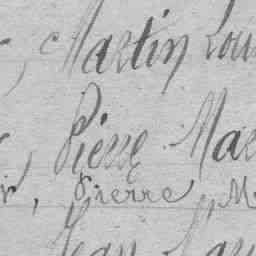 , Martin Lou
, Pierre Mar
r, Pierre M
Jean